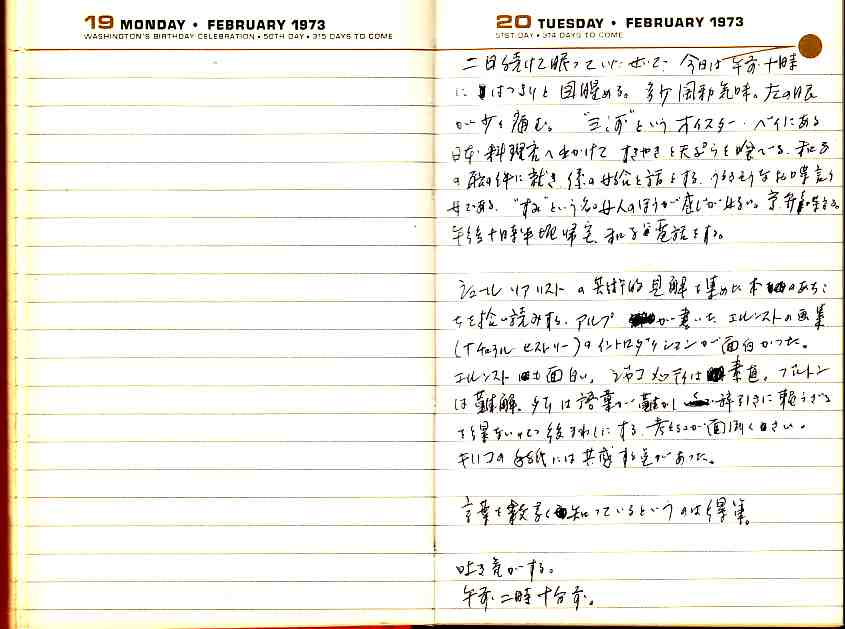 19 MONDAY • FEBRUARY 1973
WASHINGTON'S BIRTHDAY CELEBRATION • 50TH DAY • 315 DAYS TO COME
20 TUESDAY • FEBRUARY 1973
51ST DAY • 314 DAYS TO COME
二日続けて眠っていたせいで、今日は午前十時
にはっきりと目醒める。多少風邪気味。左の眼
が少々痛む。"三河"というオイスター・ベイにある
日本料理店へ出かけて すきやきと天ぷらを喰べる。
の件に就き 係の女給と話をする。
女である。"すみ"という名の女人のほうが感じが
午後十時半帰宅 電話をする。
シュールリアリストの芸術的見解を集めた本のあち、
こちを拾い読みする。アルプが書いた エルンストの画集
(ナチュラル ヒストリー)のイントロダクションが面白かった。
エルンストも面白い。ジャコメッティは素直。ブルトン
は難解。 語葉が難かし 辞引きに頼らざる
を得ないので後まわしにする。 面倒くさい。
キリコの手紙には共感する点があった。
言葉を数多く知っているというのは得策。
吐き気がする。
午前二時十分前。